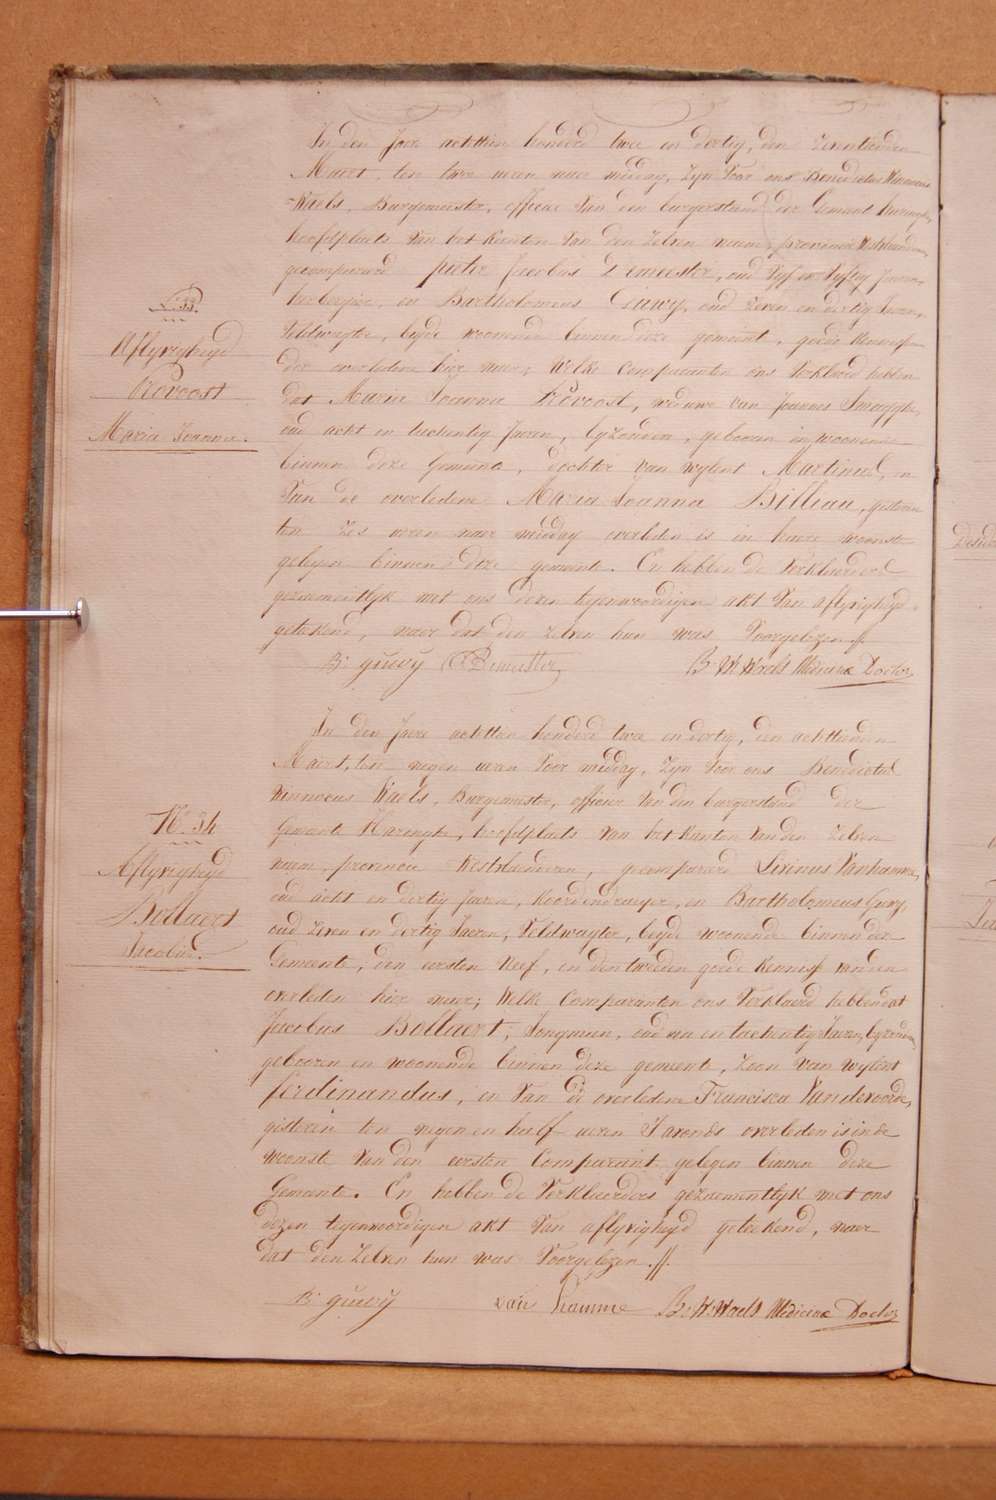 In den Jaere achttien honderd twee en dertig, den zeventienden
Maert, ten twee uren naer middag, zijn voor ons Benedictus Winnocus
Waels, Burgemeester, officier van den burgerstand der Gemeente Haringhe,
hoofdplaets van het Kanton van den zelven naem, provincie Westvlaenderen,
gecompareerd pieter Jacobus Demeester, oud vijf en vijftig Jaeren,
herbergier, en Bartholomeus Guwy, oud zeven en dertig Jaeren,
Veldwagter, beyde woonende binnen deze gemeente, goede kennissen
der overledene hier naer; Welke Comparanten ons verklaerd hebben
dat Maria Joanna Provoost, weduwe van Joannes
oud acht en tachentig Jaeren, byzondere, gebooren en woonende
binnen deze Gemeente, dochter van wylent Martinus, en
van de overledene Maria Joanna Billiau, gisteren
ten zes uren naer middag overleden is in haere woonste
gelegen binnen deze gemeente. En hebben de Verklaerders
gezaementlyk met ons dezen tegenwoordigen akt van aflyvigheyd
geteekend, naer dat den zelven hun was voorgelezen //.
B: guwy Demeester B: W: Waels Medicinæ Doctor
Aflyvigheyd
Provoost
Maria Joanna.
In den Jaere achttien honderd twee en dertig, den achttienden
Maert, ten negen uren voor middag, zijn voor ons Benedictus
Winnocus Waels, Burgemeester, officier van den burgerstand der
Gemeente Haringhe, hoofdplaets van het Kanton van den zelven
naem, provincie Westvlaenderen, gecompareerd Livinus Vanhamme,
oud acht en dertig Jaeren, Koordendraeyer, en Bartholomeus Guwy,
oud zeven en dertig Jaeren, Veldwagter, beyde woonende binnen deze
Gemeente, den eersten Neef, en den tweeden goede Kennis van den
overleden hier naer; Welke Comparanten ons Verklaerd hebben dat
Jacobus Bollaert, Jongman, oud en tachentig Jaeren, byzonderen,
gebooren en woonende binnen deze gemeente, Zoon van wylent
ferdinandus, en van de overledene Francisca Vandevoorde,
gisteren ten negen en half uren S'avonds overleden is in de
woonste van den eersten Comparant gelegen binnen deze
Gemeente. En hebben de Verklaerders gezaementlyk met ons
dezen tegenwoordigen akt van aflyvigheyd geteekend, naer
dat den Zelven hun was Voorgelezen. //.
B: guwy van hamme B: W: Waels Medicinæ Doctor
No 34
Aflyvigheyd
Bollaert
Jacobus.